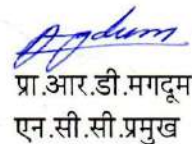 प्रा.आर.डी.मगदूम
एन.सी.सी.प्रमुख